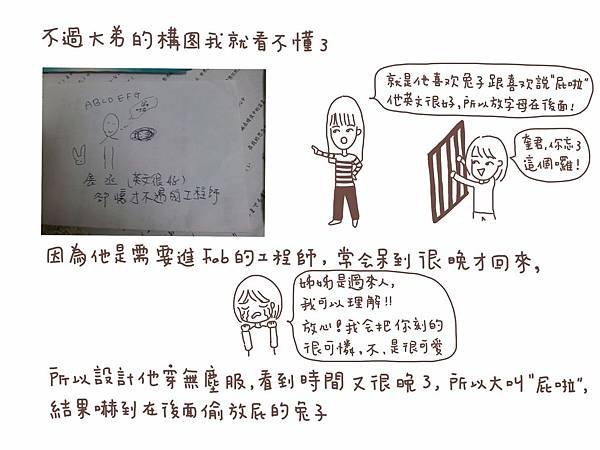 不過大弟的構图我就看不懂了
ABCDEFG
(英文很好)
卻懷才不遇的工程師
就是他喜欢兔子跟喜欢說"屁啦"
他英文很好,所以放字母在後面!
奎君,你忘了
這個囉!
因為他是需要進Fab的工程師,常会呆到很晚才回來,
姊姊是過來人,
我可以理解!!
放心!我会把你刻的
很可憐,不,是很可愛
所以設計他穿無塵服,看到時間又很晚了,所以大叫"屁啦",
結果嚇到在後面偷放屁的兔子